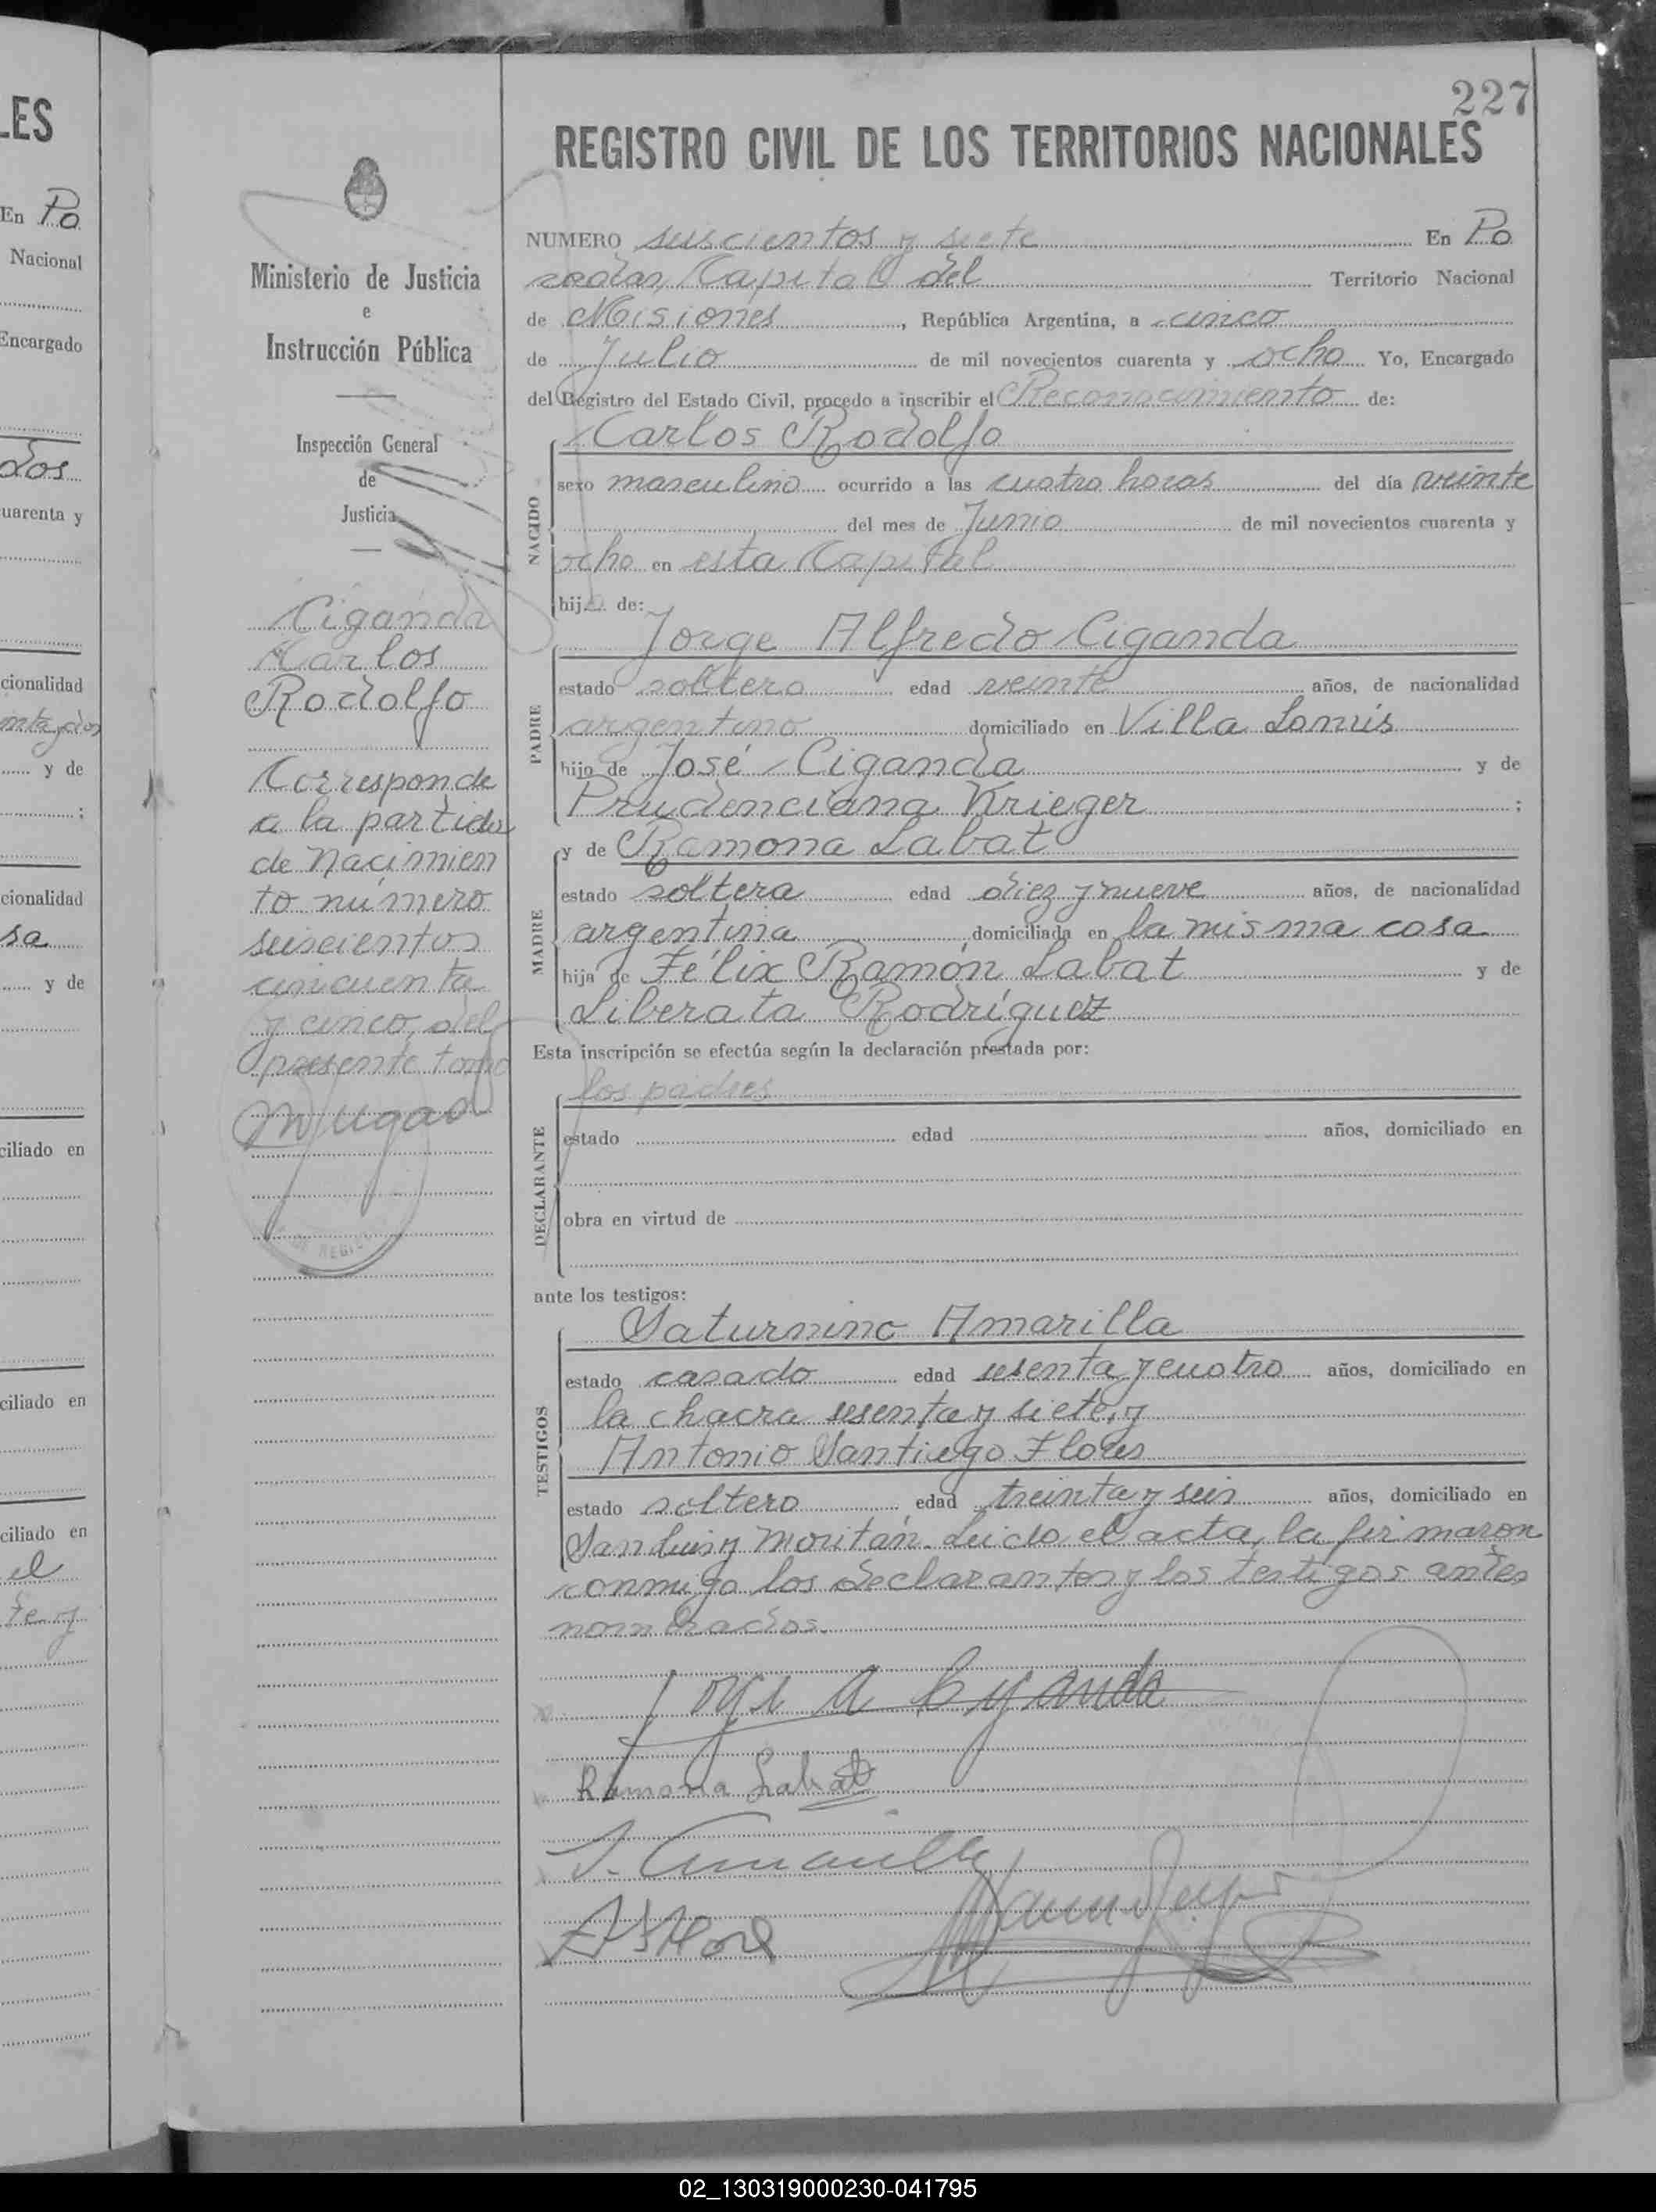 LES
En Po
Nacional
Encargado
dos
cuarenta y
cionalidad
y de
;
cionalidad
sa
y de
ciliado en
ciliado en
ciliado en
el
te y
Ministerio de Justicia
e
Instrucción Pública
Inspección General
de
Justicia
Ciganda
Carlos
Rodolfo
Corresponde
a la partida
de nacimien
to número
seiscientos
cincuenta
y cinco, del
presente tomo
227
REGISTRO CIVIL DE LOS TERRITORIOS NACIONALES
NUMERO seiscientos y siete En Po
sadas, Capital del Territorio Nacional
de Misiones, República Argentina, a cinco
de Julio de mil novecientos cuarenta y ocho Yo, Encargado
del Registro del Estado Civil, procedo a inscribir el Reconocimiento de:
NACIDO
Carlos Rodolfo
sexo masculino ocurrido a las cuatro horas del día veinte
del mes de Junio de mil novecientos cuarenta y
ocho en esta Capital
hijo de:
PADRE
Jorge Alfredo Ciganda
estado soltero edad veinte años, de nacionalidad
argentino domiciliado en Villa Lanús
hijo de José Ciganda y de
Prudenciana Krieger ;
MADRE
y de Ramona Labat
estado soltera edad diez y nueve años, de nacionalidad
argentina, domiciliada en la misma casa
hija de Félix Ramón Labat y de
Liberata Rodríguez
Esta inscripción se efectúa según la declaración prestada por:
DECLARANTE
los padres
estado edad años, domiciliado en
obra en virtud de
ante los testigos:
TESTIGOS
Saturnino Amarilla
estado casado edad sesenta y cuatro años, domiciliado en
la chacra sesenta y siete, y
Antonio Santiago Flores
estado soltero, edad treinta y seis años, domiciliado en
San Luis y Moritán. Leida el acta, la firmaron
conmigo los declarantes y los testigos antes
nombrados.
Jorge A Ciganda
Ramona Labat
S. Amarilla
ASFlores
02_130319000230-041795